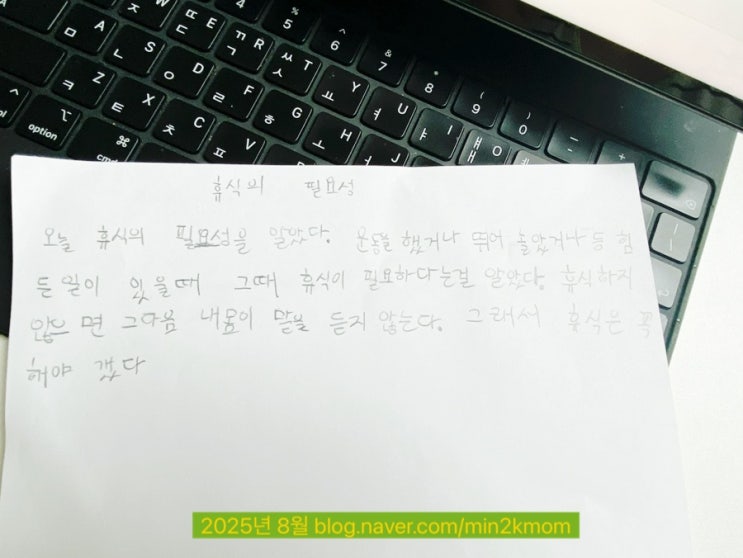 % 5
^ 6
& 7
* 8
( 9
) 0
W ㅉ ㅈ
E ㄸ ㄷ
R ㄲ ㄱ
T ㅆ ㅅ
Y ㅛ
U ㅕ
I ㅑ
O ㅒ ㅐ
A ㅁ
S ㄴ
D ㅇ
F ㄹ
G ㅎ
H ㅗ
J ㅓ
K ㅏ
L ㅣ
Z ㅋ
X ㅌ
C ㅊ
V ㅍ
option
cmd
휴식의 필요성
오늘 휴식의 필요성을 알았다. 운동을 했거나 뛰어 놀았거나 등 힘
든일이 있을때 그때 휴식이 필요하다는걸 알았다. 휴식하지
않으면 그다음 내몸이 말을 듣지 않는다. 그래서 휴식은 꼭
해야 겠다
2025년 8월 blog.naver.com/min2kmom